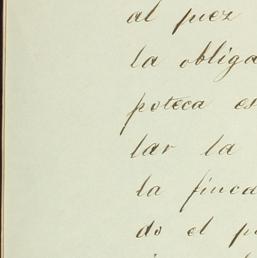 al juez
la obliga
poteca es
lar la
la finca
do el p